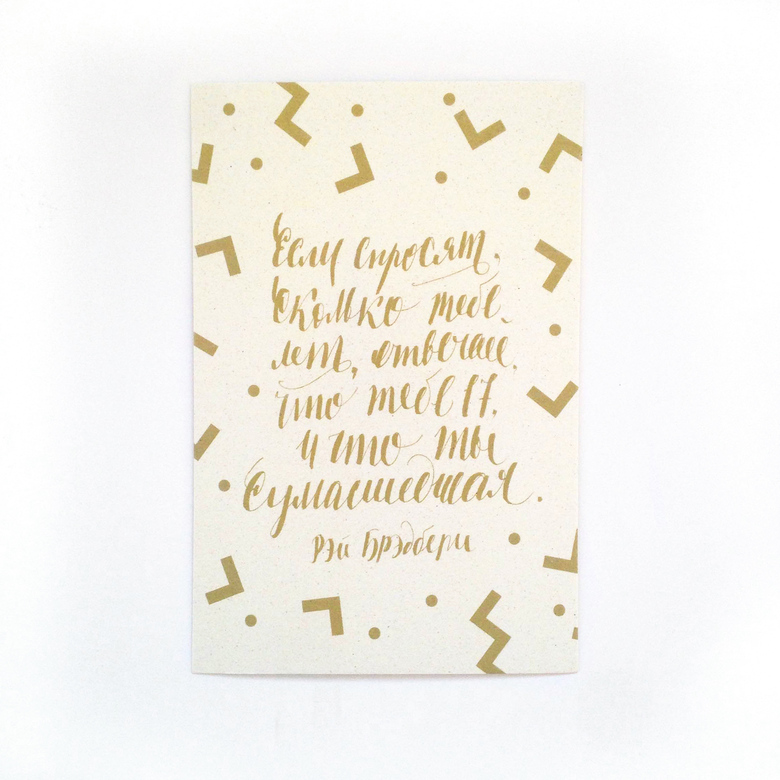 Если спросят,
сколько тебе
лет, отвечай,
что тебе 17,
и что ты
сумасшедшая.
Рэй Брэдбери